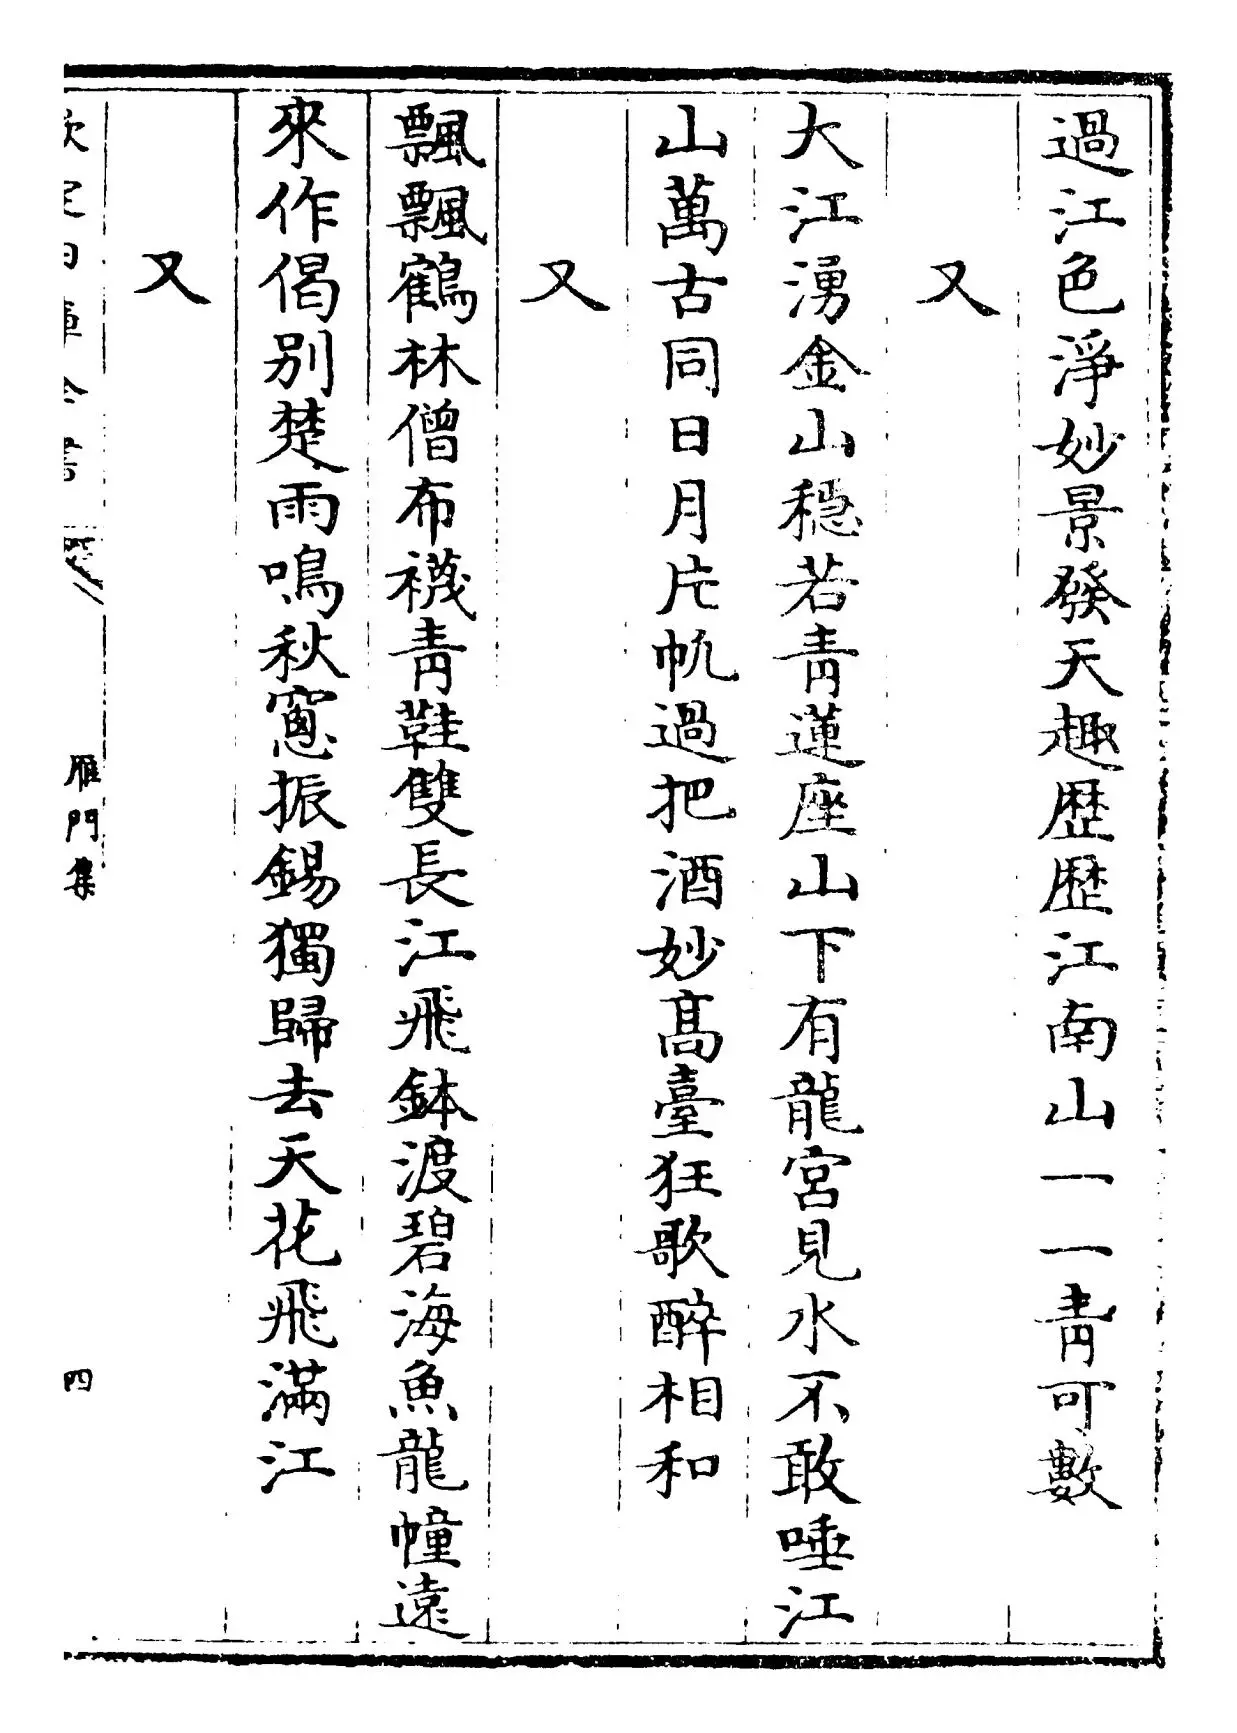 過江色淨妙景發天趣歴歴江南山一一青可數
又
大江湧金山穏若青蓮座山下有龍宮見水不敢唾江
山萬古同日月片帆過把酒妙髙臺狂歌醉相和
又
飄飄鶴林僧布襪青鞋雙長江飛鉢渡碧海魚龍幢逺
來作偈别楚雨鳴秋窻振錫獨歸去天花飛滿江
又
欽定四庫全書
雁門集
四